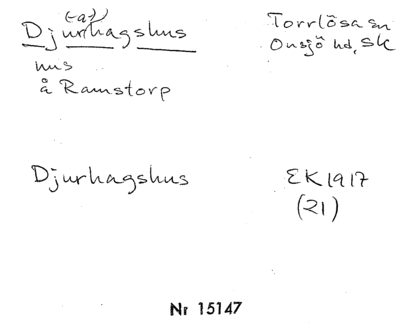 (-a-)
Djurhagshus
hus
å Ramstorp
Torrlösa sn
Onsjö hd, Sk
Djurhagshus
EK 1917
(21)
Nr 15147